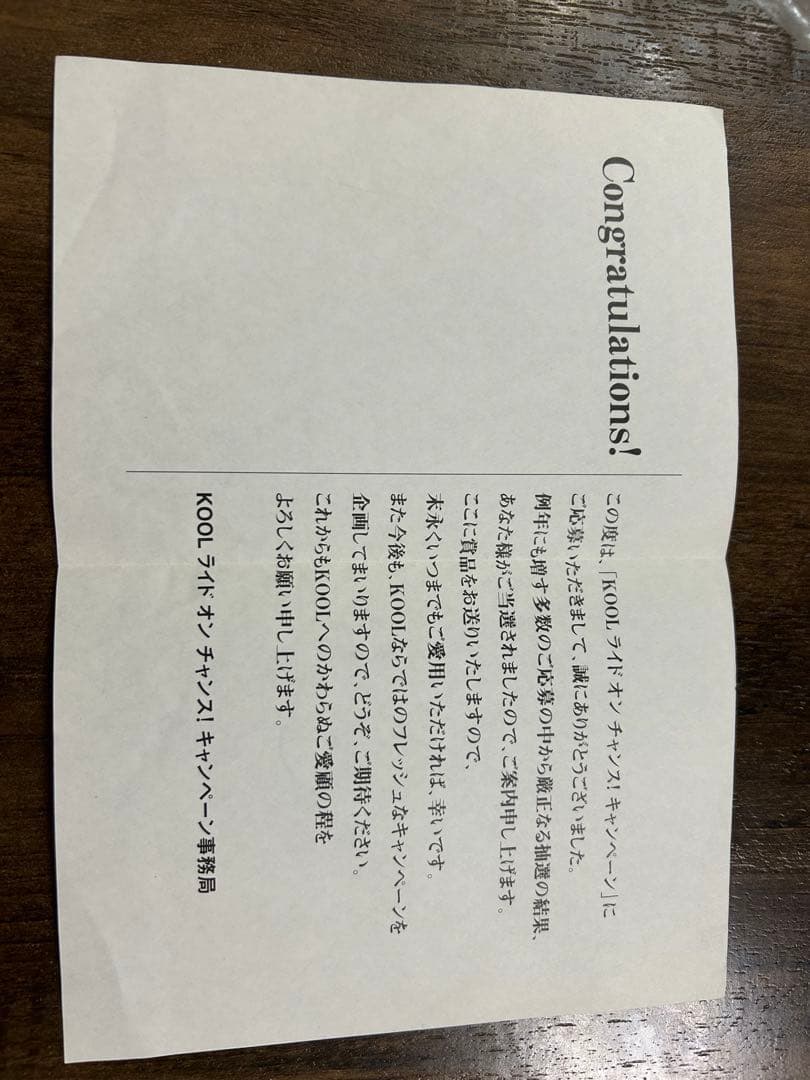 Congratulations!
この度は、「KOOL ライド オン チャンス! キャンペーン」に
ご応募いただきまして、誠にありがとうございました。
例年にも増す多数のご応募の中から厳正なる抽選の結果、
あなた様がご当選されましたので、ご案内申し上げます。
ここに賞品をお送りいたしますので、
末永くいつまでもご愛用いただければ、幸いです。
また今後も、KOOLならではのフレッシュなキャンペーンを
企画してまいりますので、どうぞ、ご期待ください。
これからもKOOLへのかわらぬご愛顧の程を
よろしくお願い申し上げます。
KOOL ライド オン チャンス! キャンペーン事務局